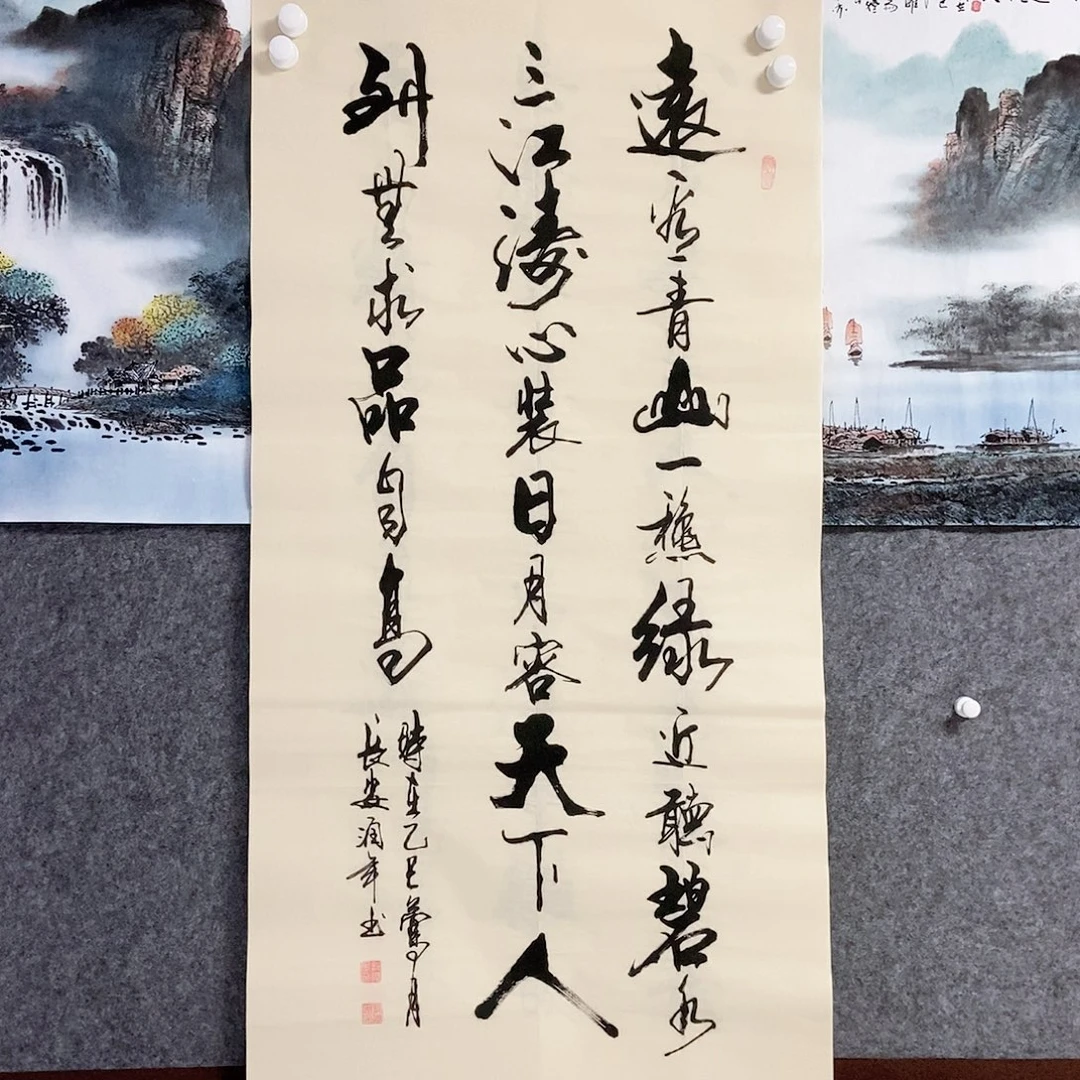 遠看青山一綠近聽碧水
三江濤心裝日月容天下人
到無求品自高
時在乙巳月
長安潤年书